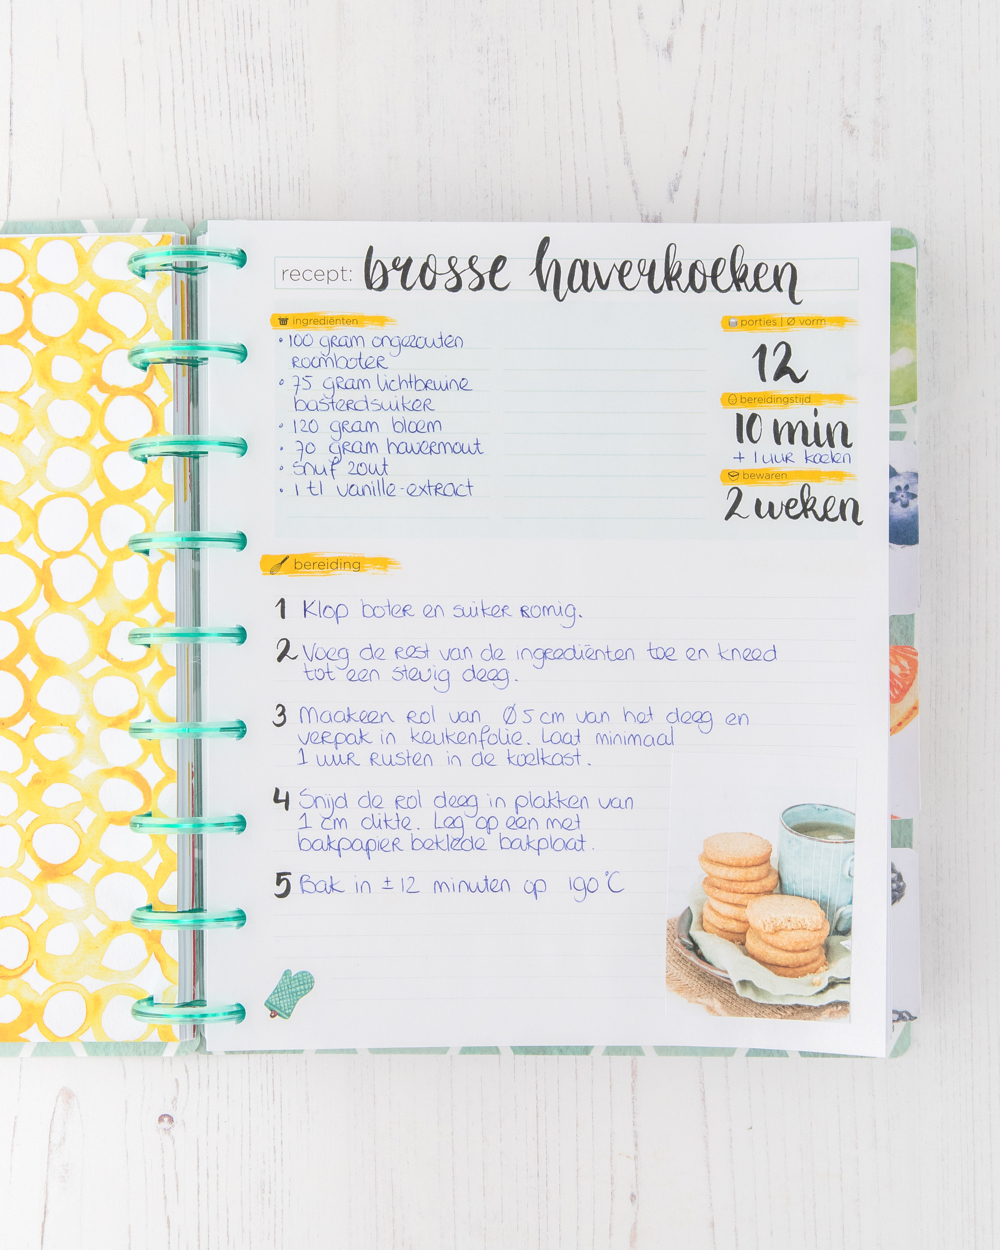 recept: brosse haverkoeken
ingrediënten
• 100 gram ongezouten
roomboter
• 75 gram lichtbruine
basterdsuiker
• 120 gram bloem
• 70 gram havermout
• snuf zout
• 1 tl vanille-extract
porties | Ø vorm
12
bereidingstijd
10 min
+ 1 uur koelen
bewaren
2 weken
bereiding
1 Klop boter en suiker romig.
2 Voeg de rest van de ingrediënten toe en kneed
tot een stevig deeg.
3 Maak een rol van Ø 5 cm van het deeg en
verpak in keukenfolie. Laat minimaal
1 uur rusten in de koelkast.
4 Snijd de rol deeg in plakken van
1 cm dikte. Leg op een met
bakpapier beklede bakplaat.
5 Bak in ± 12 minuten op 190°C